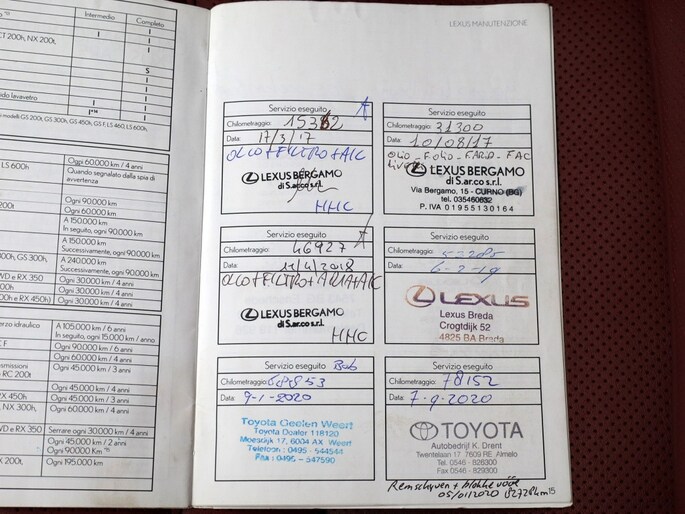 Intermedio Completo
I
CT 200h, NX 200t, I
I
S
I
I
ido lavavetro I
I*¹⁴ I
modelli GS 200t, GS 300h, GS 450h, GS F, LS 460, LS 600h,
LS 600h Ogni 60.000 km / 4 anni
Quando segnalato dalla spia di
avvertenza
Ogni 90.000 km
200t Ogni 60.000 km
A 150.000 km
In seguito, ogni 90.000 km
A 150.000 km
Successivamente, ogni 90.000 km
300h, GS 300h, A 240.000 km
Successivamente, ogni 90.000 km
WD e RX 350 Ogni 30000 km / 4 anni
00h e RX 450h) Ogni 30.000 km / 4 anni
erzo idraulico A 105.000 km / 6 anni
In seguito, ogni 15.000 km / anno
C F Ogni 90.000 km / 6 anni
Ogni 60.000 km / 4 anni
smissioni Ogni 45.000 km / 3 anni
RC 200t
Ogni 45.000 km / 3 anni
Ogni 45.000 km / 4 anni
NX 300h, Ogni 60.000 km / 4 anni
WD e RX 350 Serrare ogni 30000 km / 4 anni
Ogni 45.000 km / 2 anni
Ogni 90000 Km
X 200t, Ogni 195.000 km
LEXUS MANUTENZIONE
Servizio eseguito
Chilometraggio:
Data: 17/3/'17
OLIO+FILTRO+A/C
LEXUS BERGAMO
di S.ar.co s.r.l.
HHC
Servizio eseguito
Chilometraggio: 31300
Data: 10/08/17
OLIO - F.OLIO - F.ARIA - F.AC
LEXUS BERGAMO
di S.ar.co s.r.l.
Via Bergamo, 15 - CURNO (BG)
tel. 035460632
P. IVA 01955130164
Servizio eseguito
Chilometraggio: 46927
Data: /4/2018
OLIO+FILTRO+ARIA+A/C
LEXUS BERGAMO
di S.ar.co s.r.l.
HHC
Servizio eseguito
Chilometraggio:
Data: 6-2-19
LEXUS
Lexus Breda
Crogtdijk 52
4825 BA Breda
Servizio eseguito
Chilometraggio:
Data: 9-1-2020
Toyota Geelen Weert
Toyota Dealer 118120
Moesdijk 17, 6004 AX Weert
Telefoon : 0495 - 544544
Fax : 0495 - 547590
Servizio eseguito
Chilometraggio: 78152
Data: 7-9-2020
TOYOTA
Autobedrijf K. Drent
Twentelaan 17 7609 RE Almelo
Tel. 0546 - 826300
Fax 0546 - 829300
Remschyven + blokke vóór
05/01/2020 82728km
15